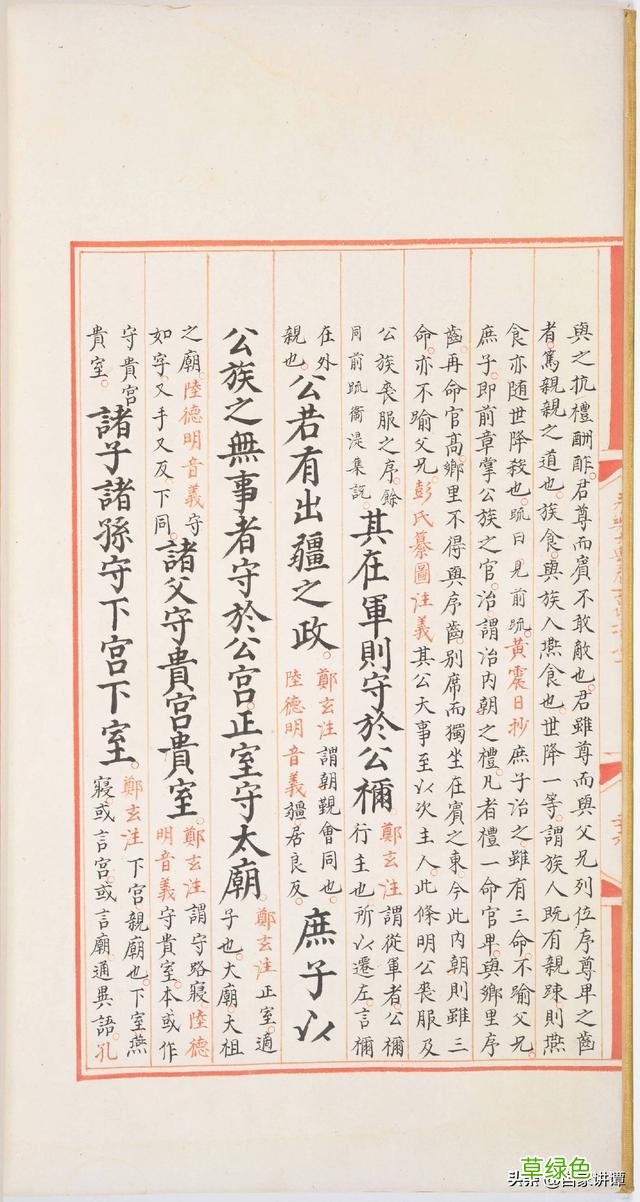 與之抗禮酬酢。君尊而賓不敢敵也。君雖尊而與父兄列位序尊卑之齒
者。篤親親之道也。族食。與族人燕食也。世降一等。謂族人既有親疎則燕
食亦随世降殺也。疏曰見前疏。黃震日抄庶子治之。雖有三命。不踰父兄。
庶子。即前章掌公族之官。治謂治內朝之禮。凡者禮一命官卑。與鄉里序
齒。再命官高。鄉里不得與序齒。別席而獨坐在賓之東。今此內朝則雖三
命。亦不踰父兄。彭氏纂圖注義其公大事至以次主人。此條明公喪服及
公族喪服之序。餘
同前疏衞湜集說。
其在軍則守於公禰。
鄭玄注謂從軍者。公禰
行主也所以遷左言禰
在外
親也。
公若有出疆之政。
鄭玄注謂朝覲會同也。
陸德明音義疆。居良反。
庶子以
公族之無事者守於公宮。正室守太廟。
鄭玄注正室。適
子也。大廟大祖
之廟。陸德明音義守
如字。又手又反。下同。
諸父守貴宮貴室。
鄭玄注謂守路寢陸德
明音義守貴室。本或作
守貴宮
貴室。
諸子諸孫守下宮下室。
鄭玄注下宮。親廟也。下室燕
寢或言宮。或言廟。通異語。孔
草绿色
头条 @百家讲谭